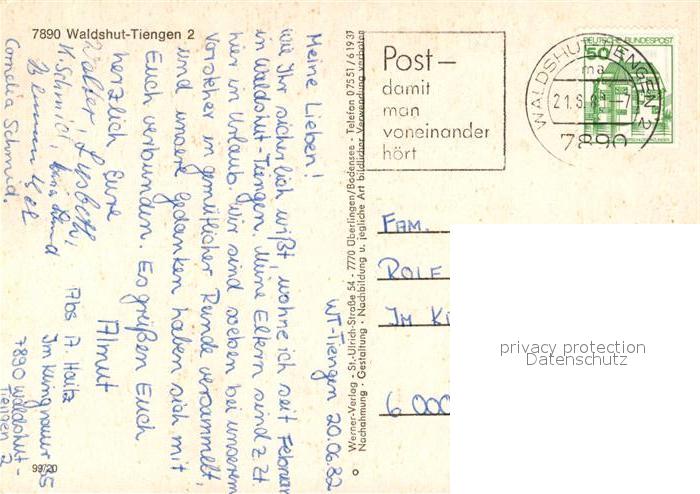 7890 Waldshut-Tiengen 2
WT-Tiengen 20.06.82
Meine Lieben!
Wie Ihr sicherlich wißt, wohne ich seit Februar
in Waldshut-Tiengen. Meine Eltern sind z.Zt.
hier in Urlaub. Wir sind soeben bei unserem
Vorsteher in gemütlicher Runde versammelt,
und unsere Gedanken haben sich mit
Euch verbunden. Es grüßen Euch
herzlich Eure Almut
Walter, Lisbeth,
H. Schmid,
Cornelia Schmid.
Abs A. Haitz
35
7890 Waldshut-
Tiengen 2
99/20
Werner-Verlag - St.-Ulrich-Straße 54 - 7770 Überlingen/Bodensee - Telefon 07551/61937
Nachahmung - Gestaltung - Nachbildung u. jegliche Art bildlicher Verwendung verboten
Post-
damit
man
voneinander
hört
WALDSHUT-TIENGEN 2
ma
21.6.
7890
DEUTSCHE BUNDESPOST
50
FAM.
ROLF
IM
6 000
privacy protection
Datenschutz